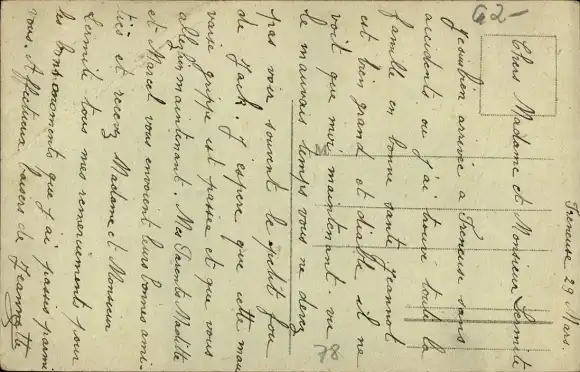 Freneuse 29 Mars.
Chers Madame et Monsieur Lermite
Je suis bien arrivée a Freneuse sans
accidents ou j'ai trouvé toute la
famille en bonne santé Jeannot
est bien grand et diable il ne
voit que moi maintenant. vu
le mauvais temps vous ne devez
pas voir souvent le petit fou
de Jack. J'espère que cette mau
vaise grippe est passée et que vous
allez bien maintenant. Mes Parents
et Marcel vous envoient leurs bonnes ami-
tiés et recevez Madame et Monsieur
Lermite tous mes remerciements pour
les bons moments que j'ai passés parmi
vous. Affectueux baisers de Jeannette
62-
78
M